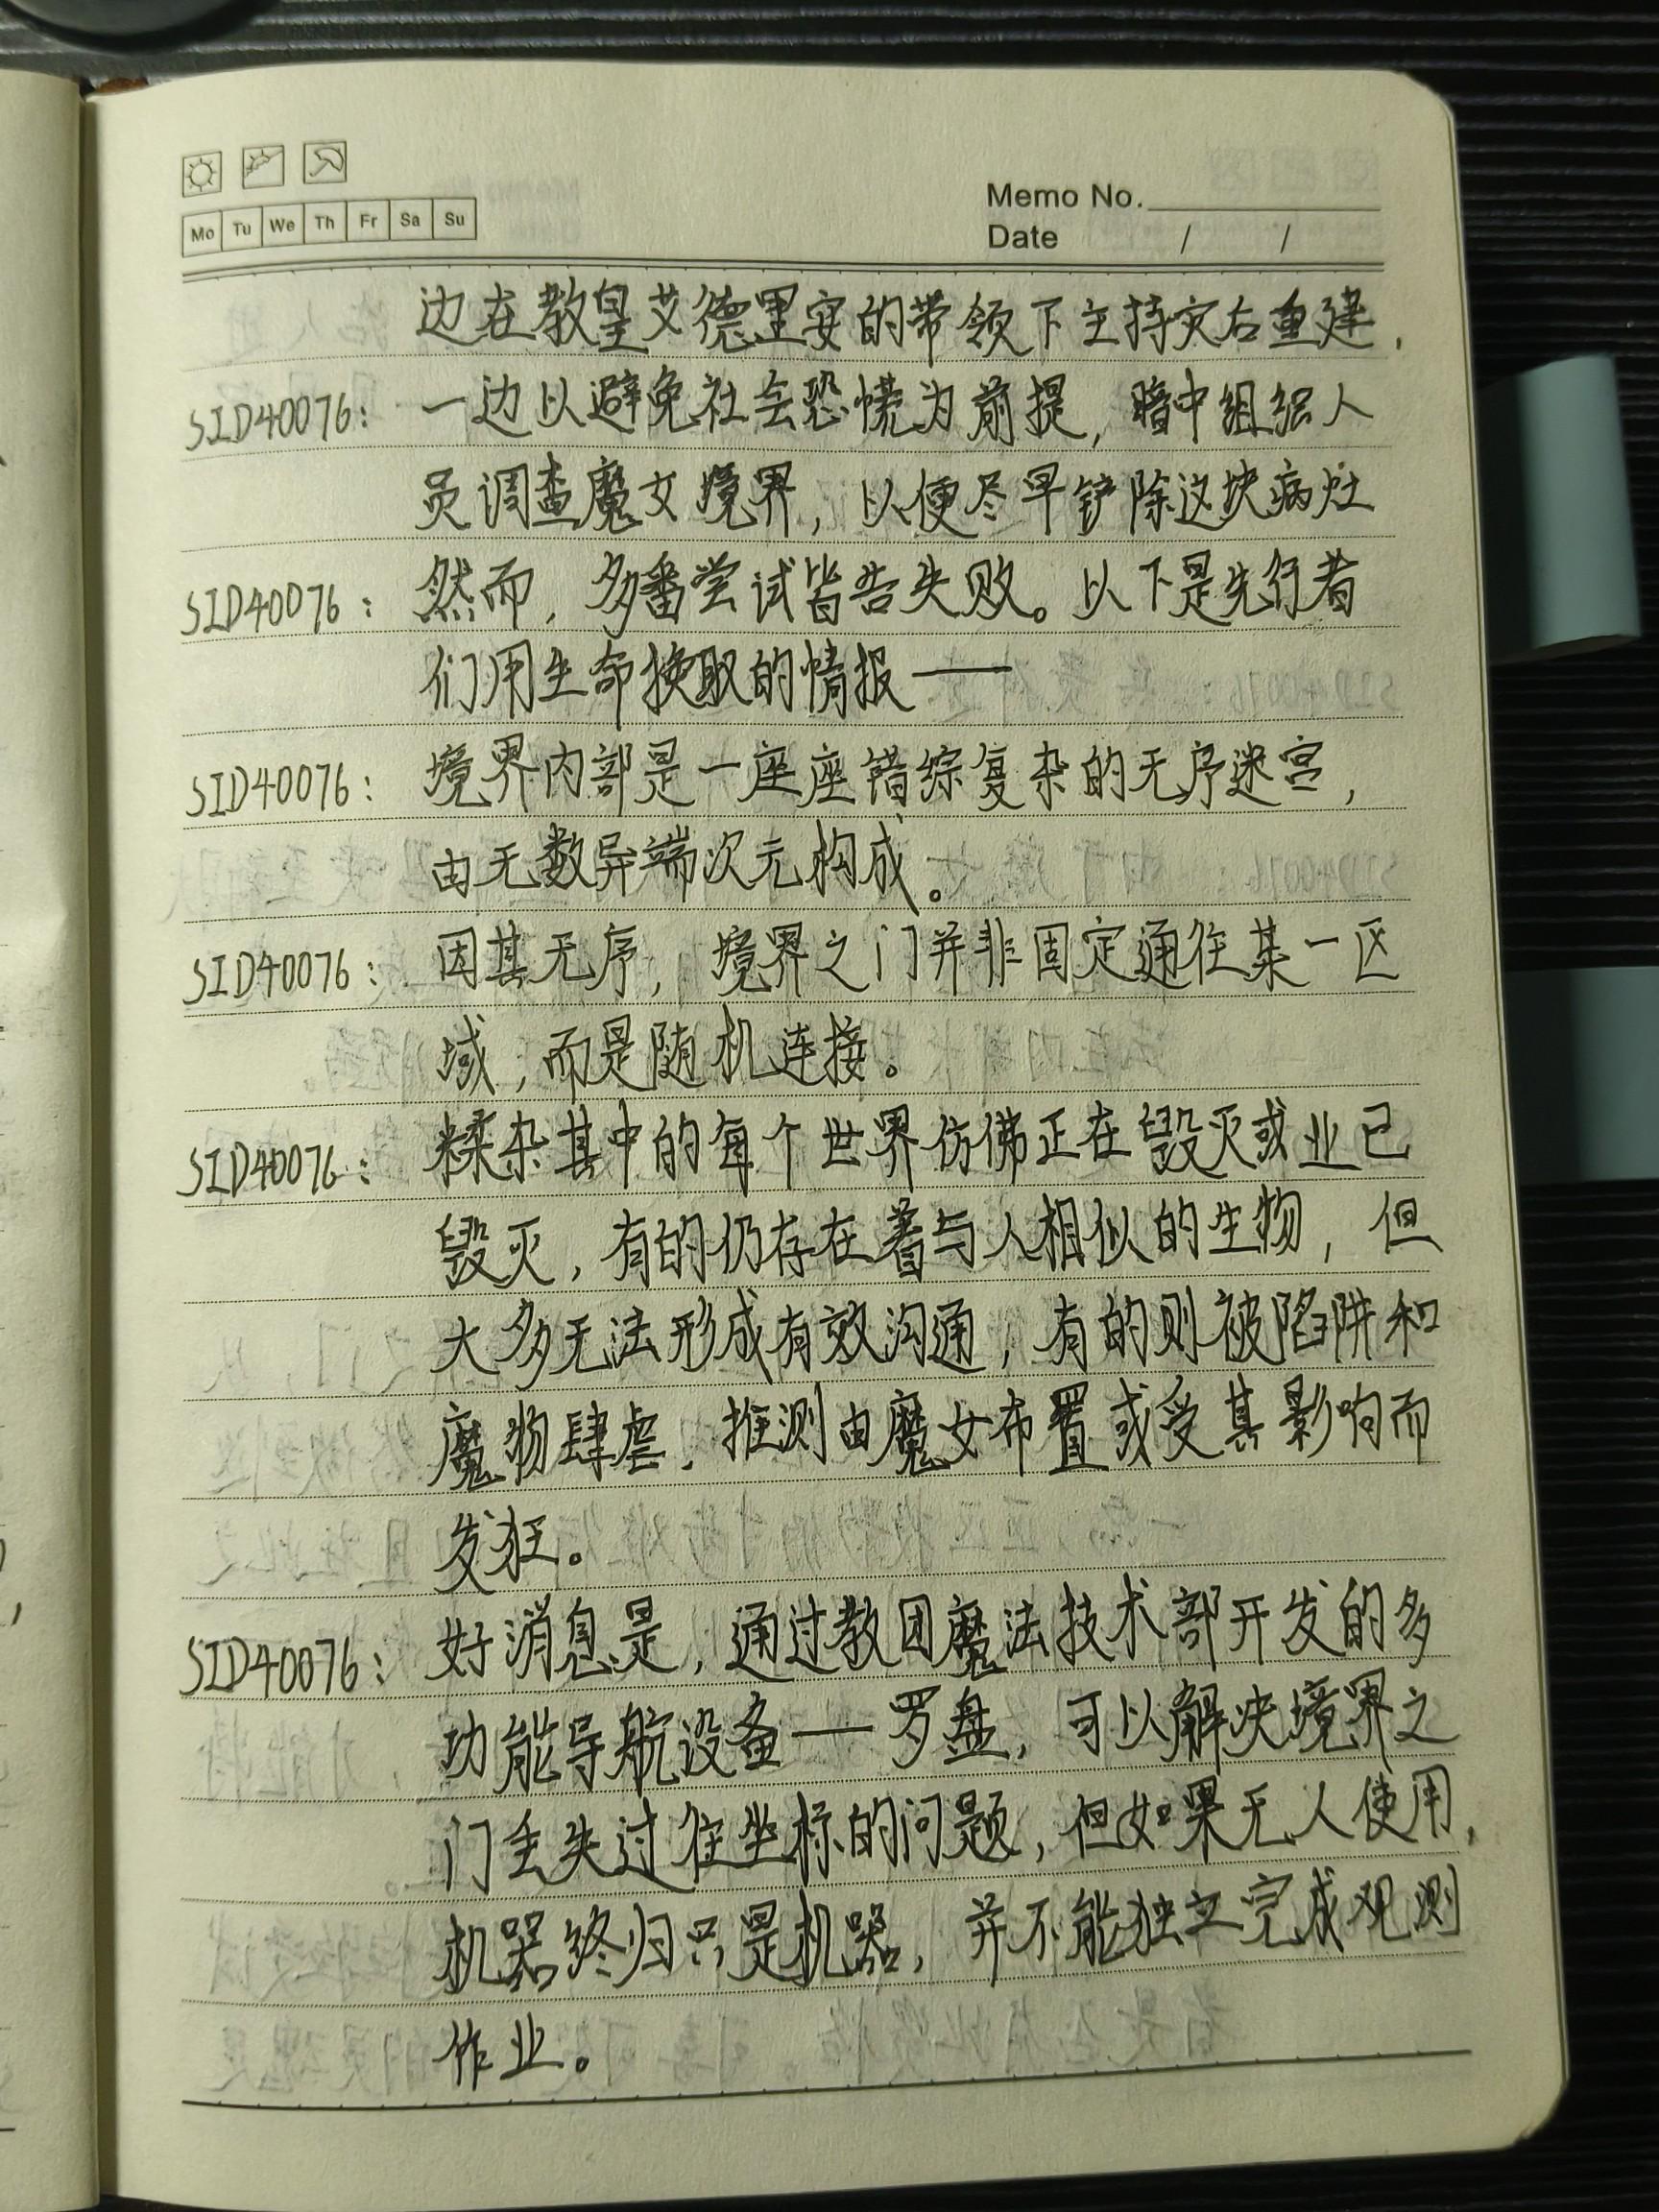 Mo Tu We Th Fr Sa Su
Memo No.
Date / /
边在教皇艾德里安的带领下主持灾后重建，
SID40076：一边以避免社会恐慌为前提，暗中组织人
员调查魔女境界，以便尽早铲除这块病灶
SID40076：然而，多番尝试皆告失败。以下是先行者
们用生命换取的情报——
SID40076：境界内部是一座座错综复杂的无序迷宫，
由无数异端次元构成。
SID40076：因其无序，境界之门并非固定通往某一区
域，而是随机连接。
SID40076：糅杂其中的每个世界仿佛正在毁灭或业已
毁灭，有的仍存在着与人相似的生物，但
大多无法形成有效沟通，有的则被陷阱和
魔物肆虐，推测由魔女布置或受其影响而
发狂。
SID40076：好消息是，通过教团魔法技术部开发的多
功能导航设备——罗盘，可以解决境界之
门丢失过往坐标的问题，但如果无人使用，
机器终归只是机器，并不能独立完成观测
作业。